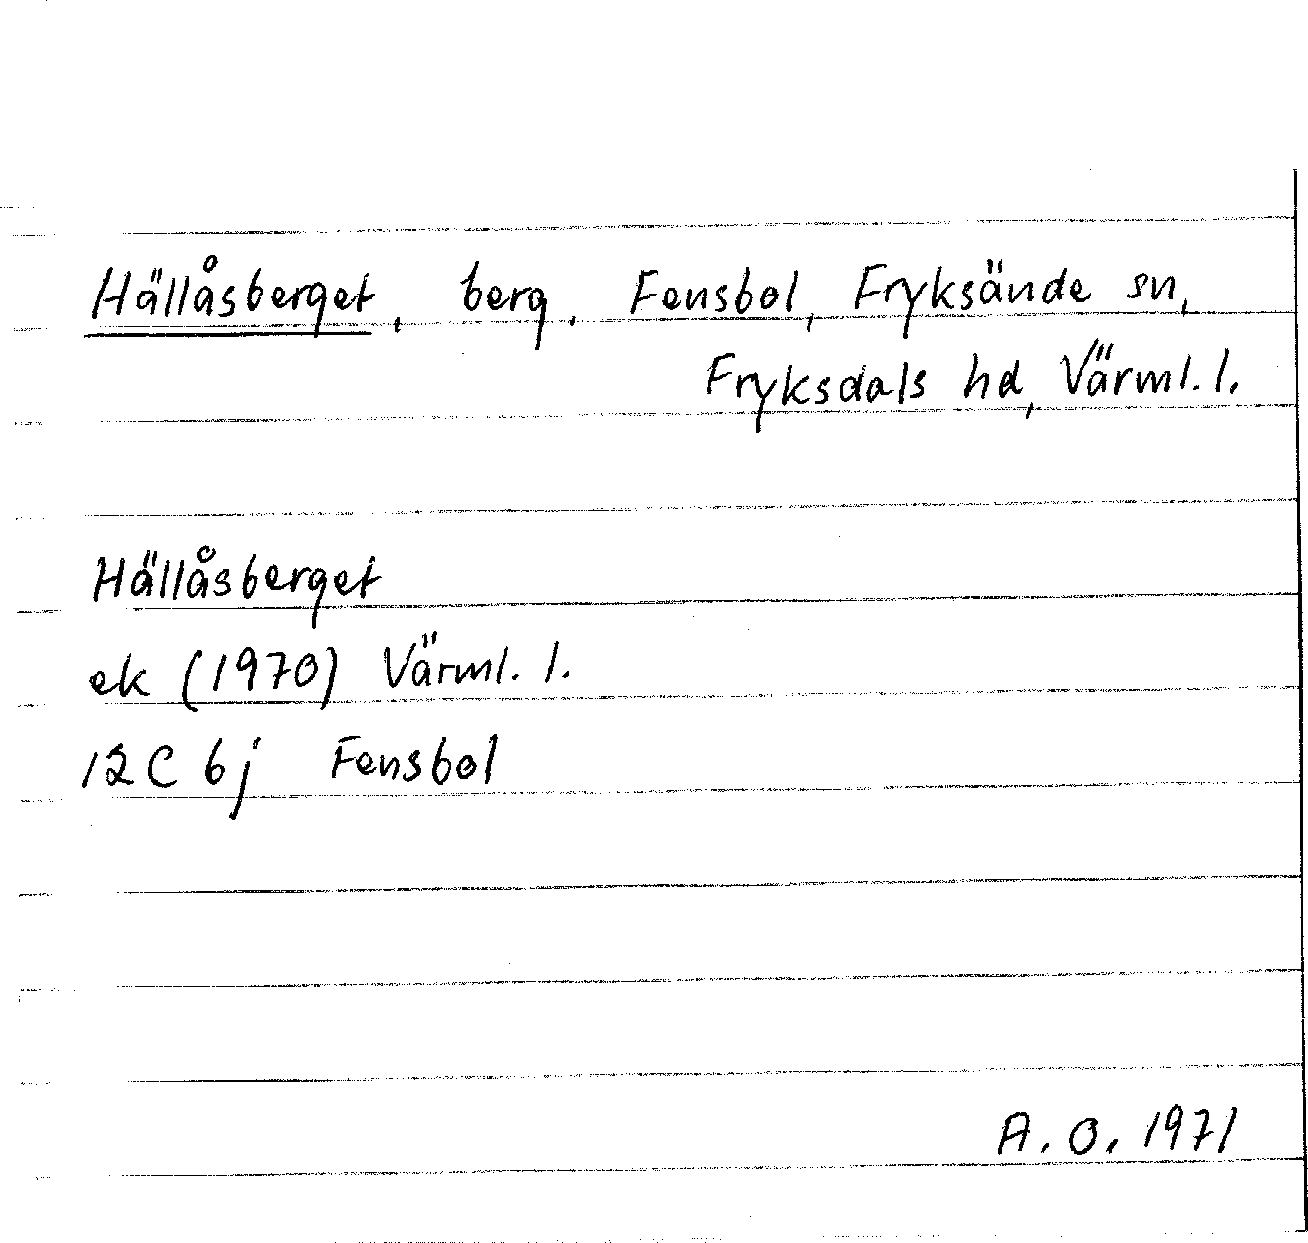 Hällåsberget, berg, Fensbol, Fryksände sn,
Fryksdals hd, Värml. l.
Hällåsberget
ek (1970) Värml. l.
12C 6j Fensbol
A. O. 1971